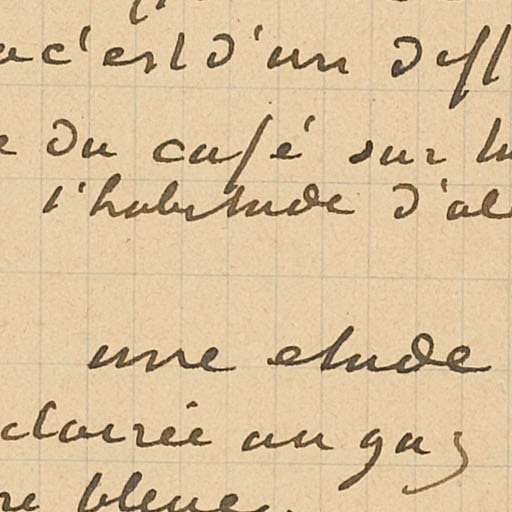 c'est d'un
du café sur
l'habitude d'al
une etude
clairée au gaz
re bleue.